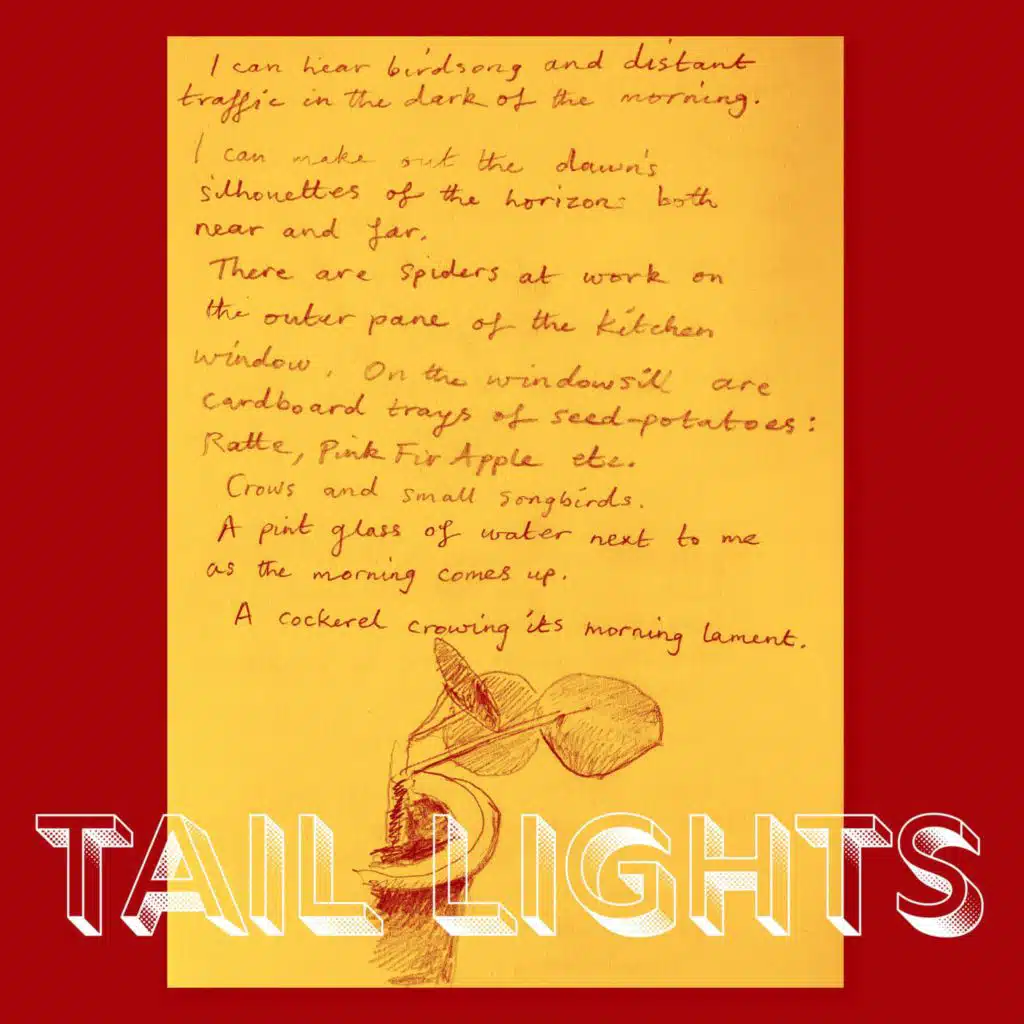 I can hear birdsong and distant
traffic in the dark of the morning.
I can make out the dawn's
silhouettes of the horizon: both
near and far.
There are spiders at work on
the outer pane of the kitchen
window. On the windowsill are
cardboard trays of seed-potatoes:
Ratte, Pink Fir Apple etc.
Crows and small songbirds.
A pint glass of water next to me
as the morning comes up.
A cockerel crowing its morning lament.
TAIL LIGHTS